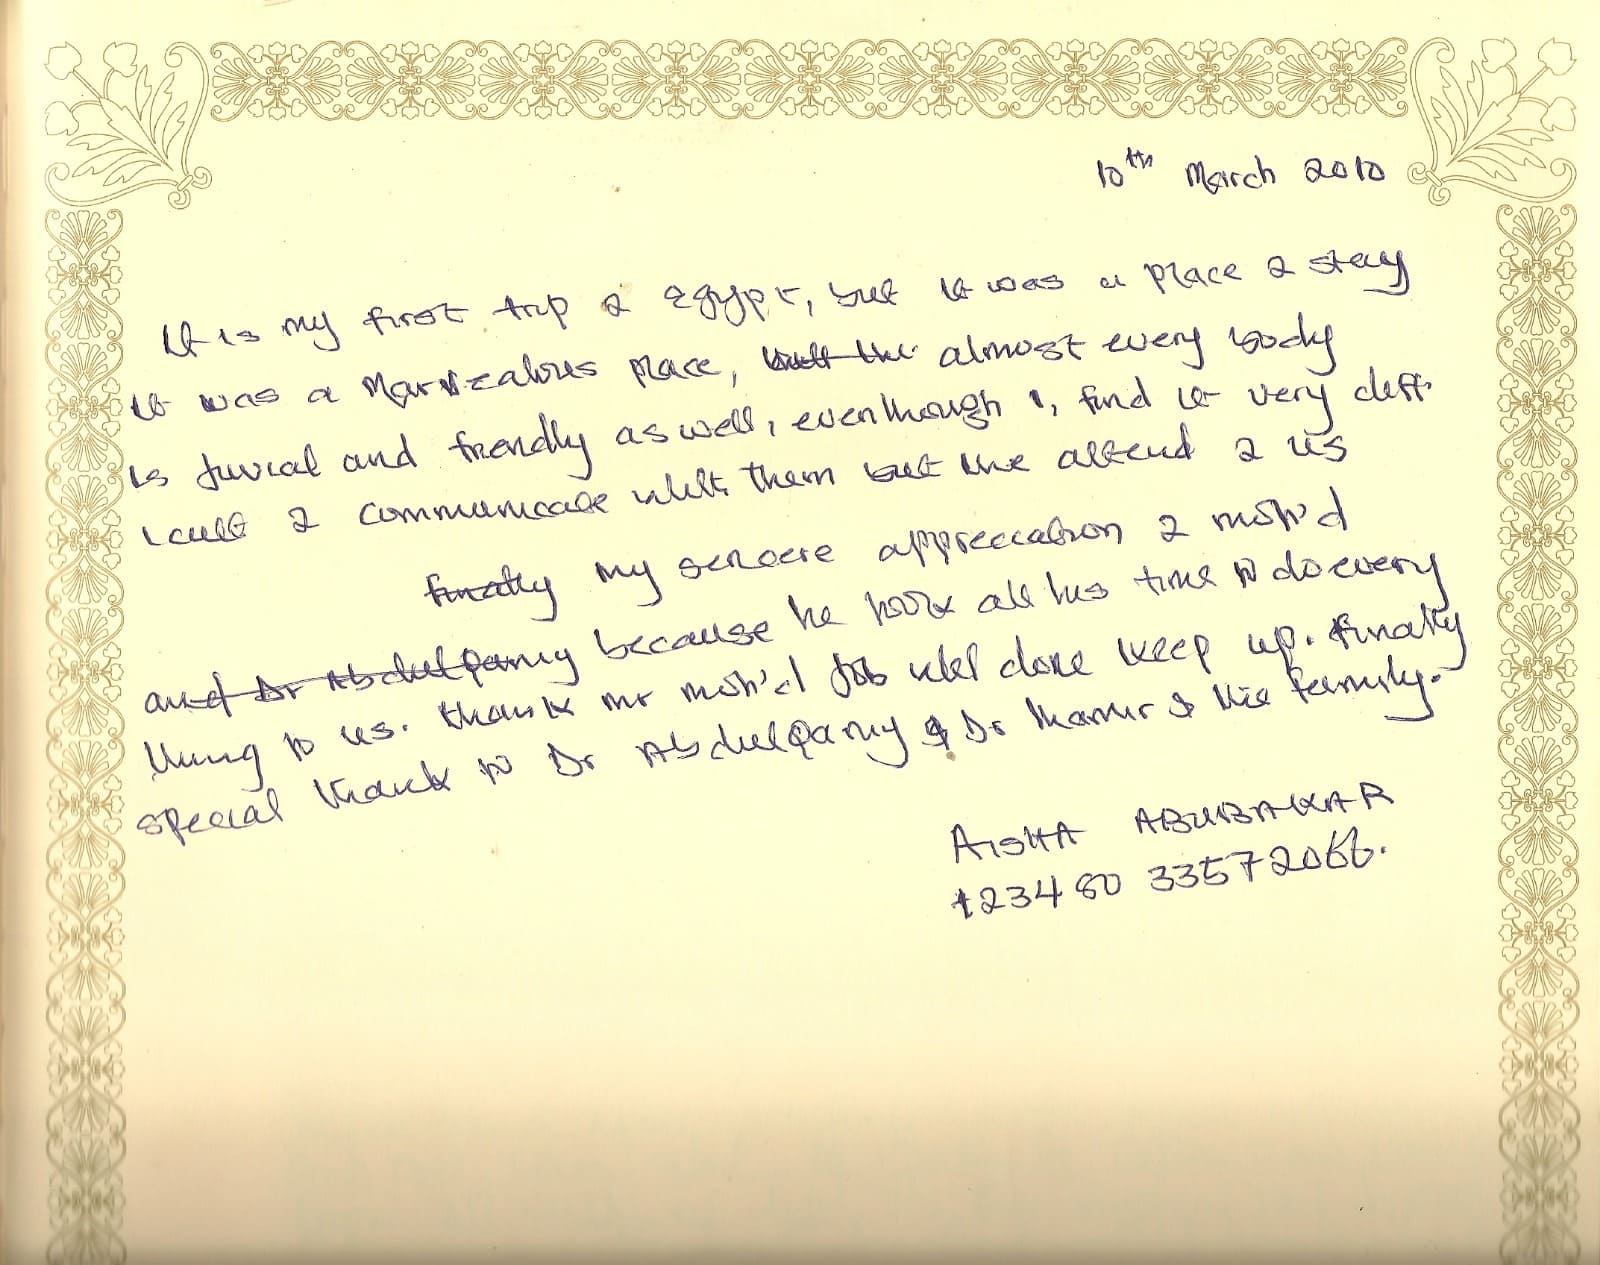 10th March 2010
It is my first trip 2 Egypt, but it was a place 2 stay
it was a Marvealous place, but the almost every body
is juvial and friendly as well, eventhough I, find it very diff
icult 2 communicate with them but the attend 2 us
finally my sencere appreciation 2 moh'd
and Dr Abdulganiy because he took all his time to do every
thing to us. thank mr moh'd job well done keep up. finally
special thank to Dr Abdulganiy & Dr thamir & his family.
AISHA ABUBAKAR
+234 80 33572066.